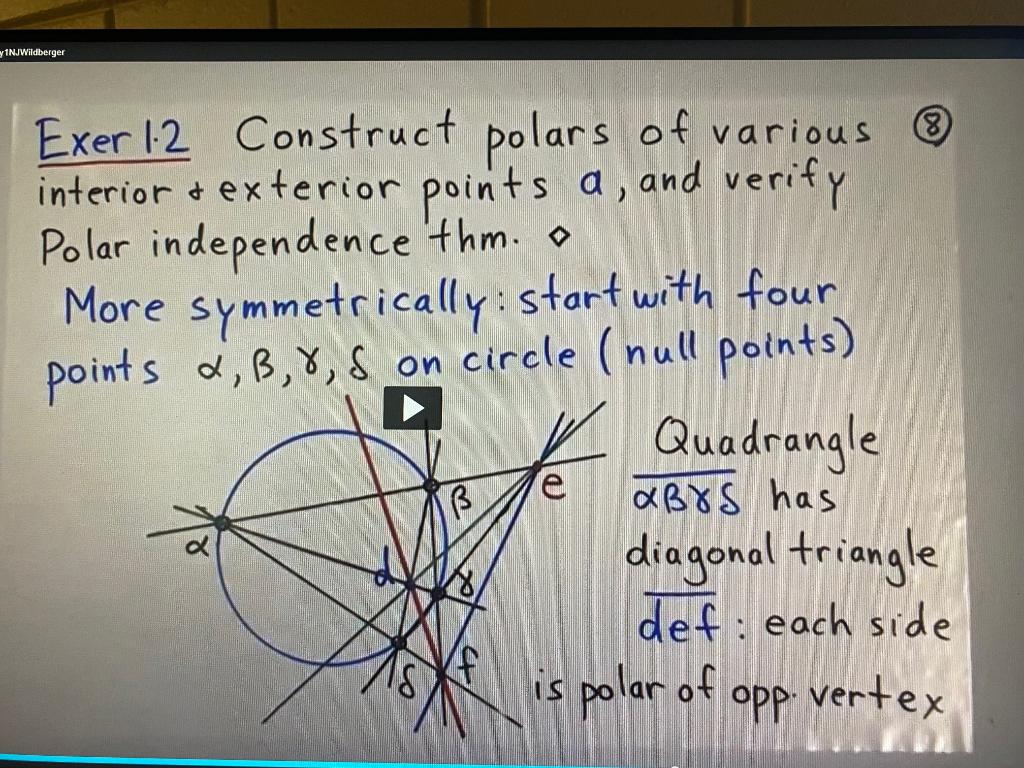 y1NJWildberger
Exer 1.2 Construct polars of various ⑧
interior & exterior points a, and verify
Polar independence thm. ◇
More symmetrically: start with four
points α, β, γ, δ on circle (null points)
Quadrangle
αβγδ has
diagonal triangle
def: each side
is polar of opp. vertex
α
β
e
d
γ
δ
f